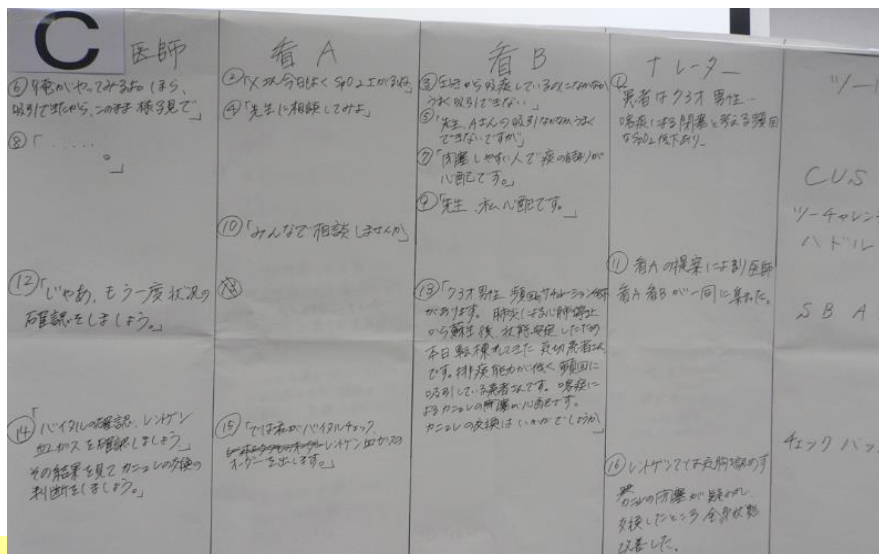 C
医師
⑥「俺がやってみるよ。ほら、
吸引できたから、このまま様子見で」
⑧「.....
。」
⑫「じゃあ、もう一度状況の
確認をしましょう。」
⑭「バイタルの確認、レントゲン
血ガスを確認しましょう」
その結果を見てカニューレの交換の
判断をしましょう。」
看A
今日よく SpO2
④「先生に相談してみよ」
⑩「みんなで相談しませんか」
⑮「では私がバイタルチェック、
レントゲン 血ガスの
オーダーを出します。」
看B
吸痰しているのになかなか
うまく吸引できない」
⑤「先生、Aさんの吸引なかなかうまく
できないですが」
⑦「閉塞しやすい人で痰の詰まりが
心配です。」
⑨「先生、私心配です。」
⑬「73才男性、頻回サチュレーション低下
があります。肺炎による心肺停止
から蘇生後、状態安定したため
本日転棟されてきた気切患者さん
です。排痰能力が低く頻回に
吸引している患者さんです。喀痰に
よるカニューレの閉塞が心配です。
カニューレの交換はいかがでしょうか」
ナレーター
①
患者は73才男性
喀痰による閉塞と考える頻回
なSpO2低下あり
⑪看Aの提案により医師
看A看Bが一同に集まった。
⑯レントゲンでは
カニューレの閉塞が疑われ
交換したところ全身状態
改善した。
ツー
CUS
ツーチャレン
ハドル
SBA
チェックバッ